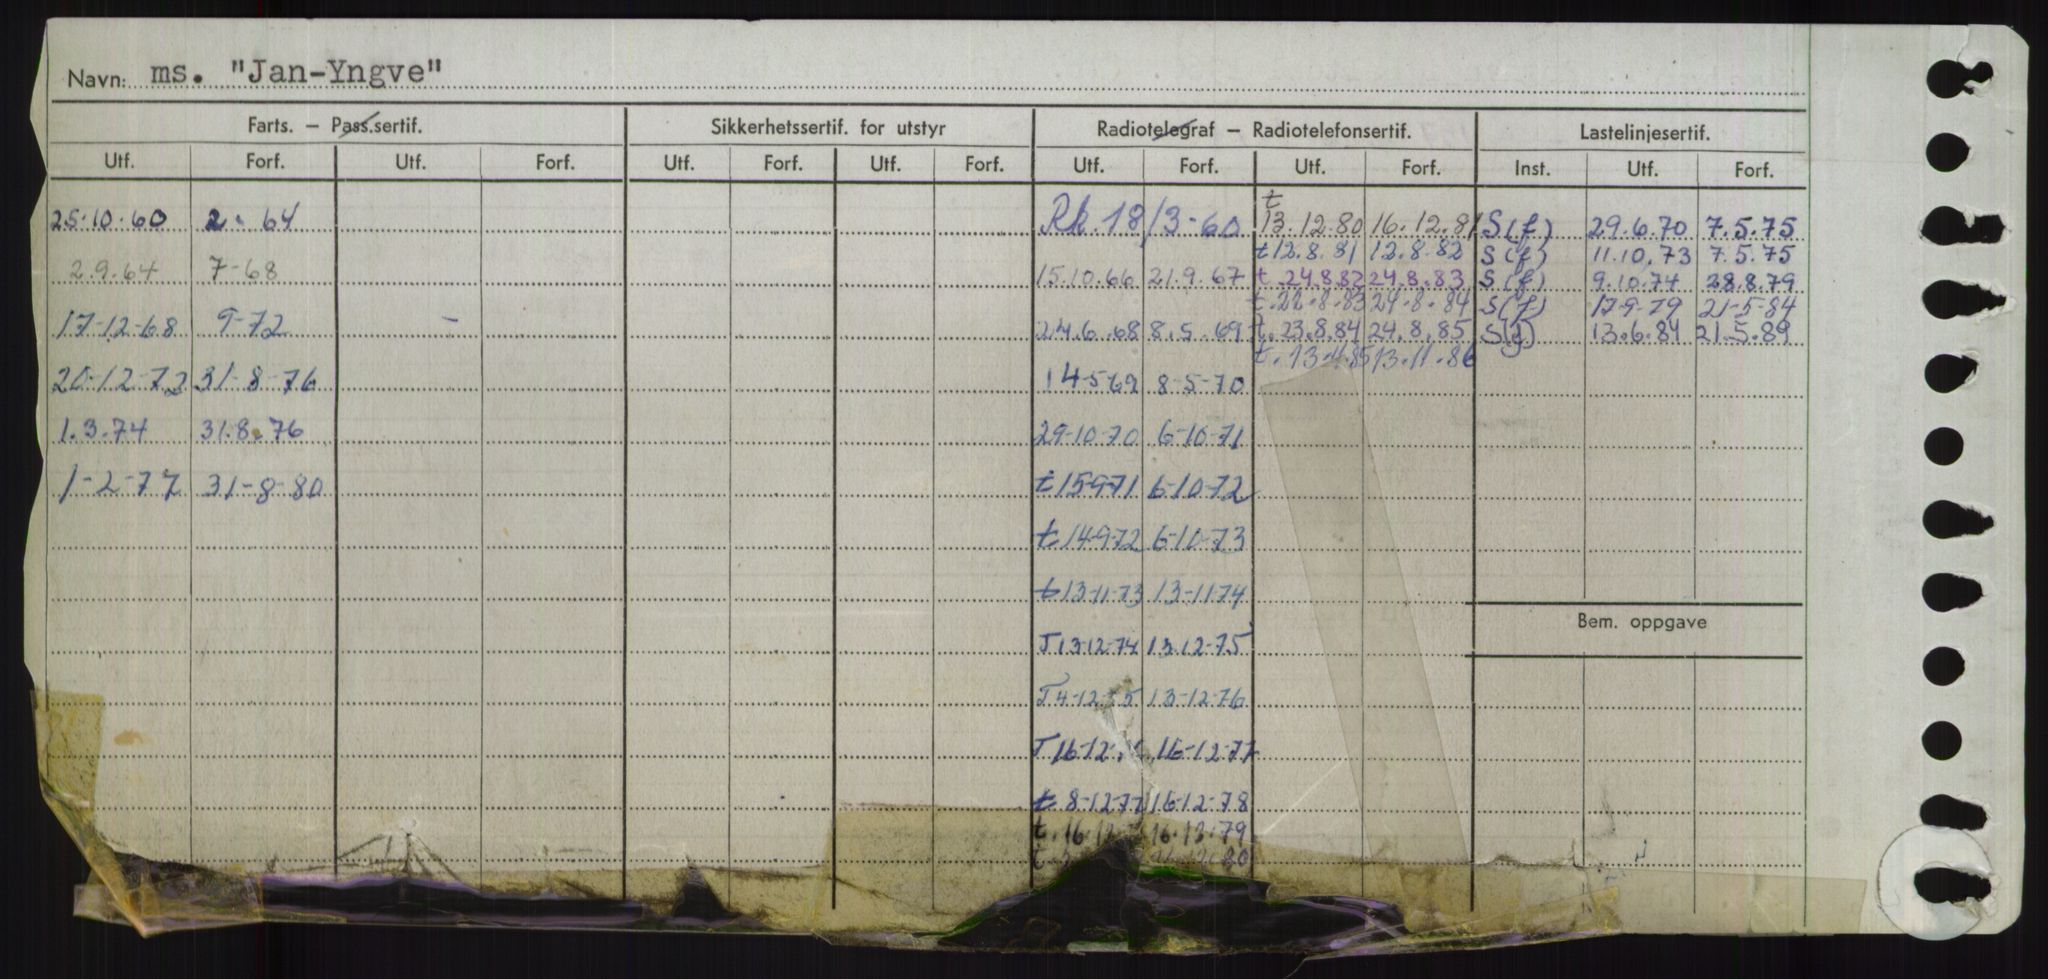 Navn: ms. "Jan-Yngve"
Farts. – Pass.sertif. Sikkerhetssertif. for utstyr Radiotelegraf – Radiotelefonsertif. Lastelinjesertif.
Utf. Forf. Utf. Forf. Utf. Forf. Utf. Forf. Utf. Forf. Utf. Forf. Inst. Utf. Forf.
25.10.60 2. 64 Rk. 18/3-60 t 13.12.80 16.12.81 S(f) 29.6.70 7.5.75
t 12.8.81 12.8.82 S(f) 11.10.73 7.5.75
2.9.64 7-68 15.10.66 21.9.67 t. 24.8.82 24.8.83 S(f) 9.10.74 28.8.79
t. 22.8.83 24.8.84 S(f) 17-9-79 21-5-84
17-12-68 9-72 - 24.6.68 8.5.69 t. 23.8.84 24.8.85 S(f) 13.6.84 21.5.89
t. 13.11.86
20-12-72 31-8-76 14-5-69 8-5-70
1.3.74 31.8.76 29-10-70 6-10-71
1-2-77 31-8-80 t 15-9-71 6-10-72
t 14-9-72 6-10-73
t 13-11-73 13-11-74
T 13-12-74 13.12-75
Bem. oppgave
T 4-12- 5 13-12-76
T 16-12- 16-12-77
t 8-12-77 16-12-78
t. 16.12 16.12.79
t. 80